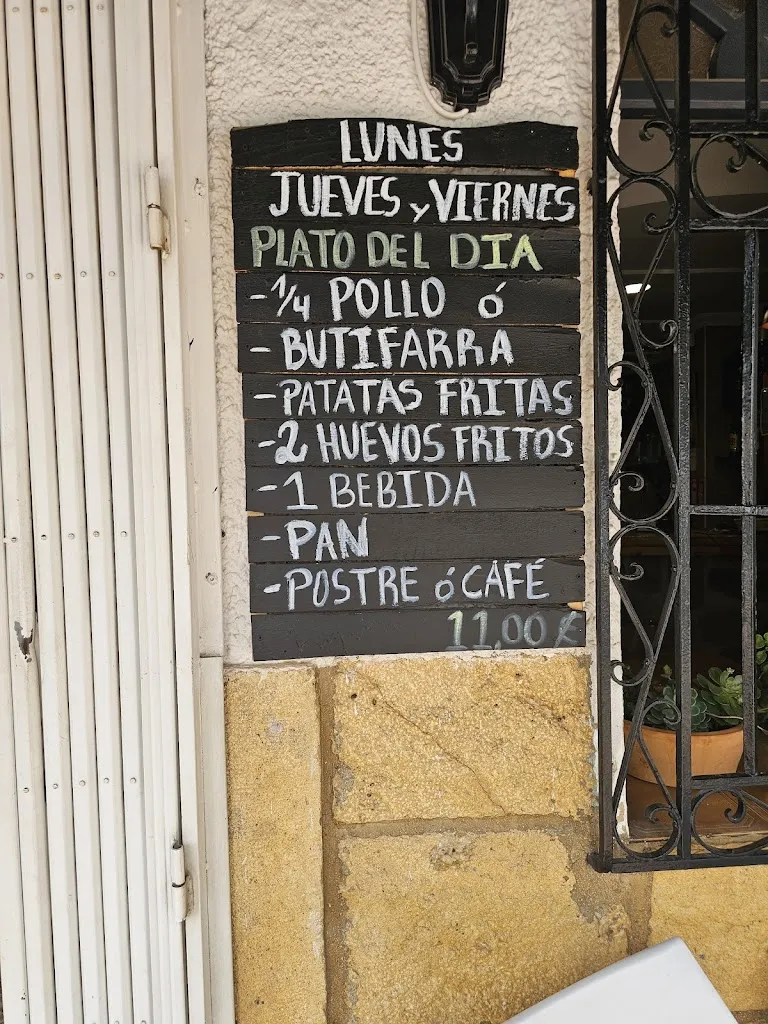 LUNES
JUEVES y VIERNES
PLATO DEL DIA
-1/4 POLLO ó
- BUTIFARRA
-PATATAS FRITAS
-2 HUEVOS FRITOS
-1 BEBIDA
-PAN
-POSTRE ó CAFÉ
11,00 €